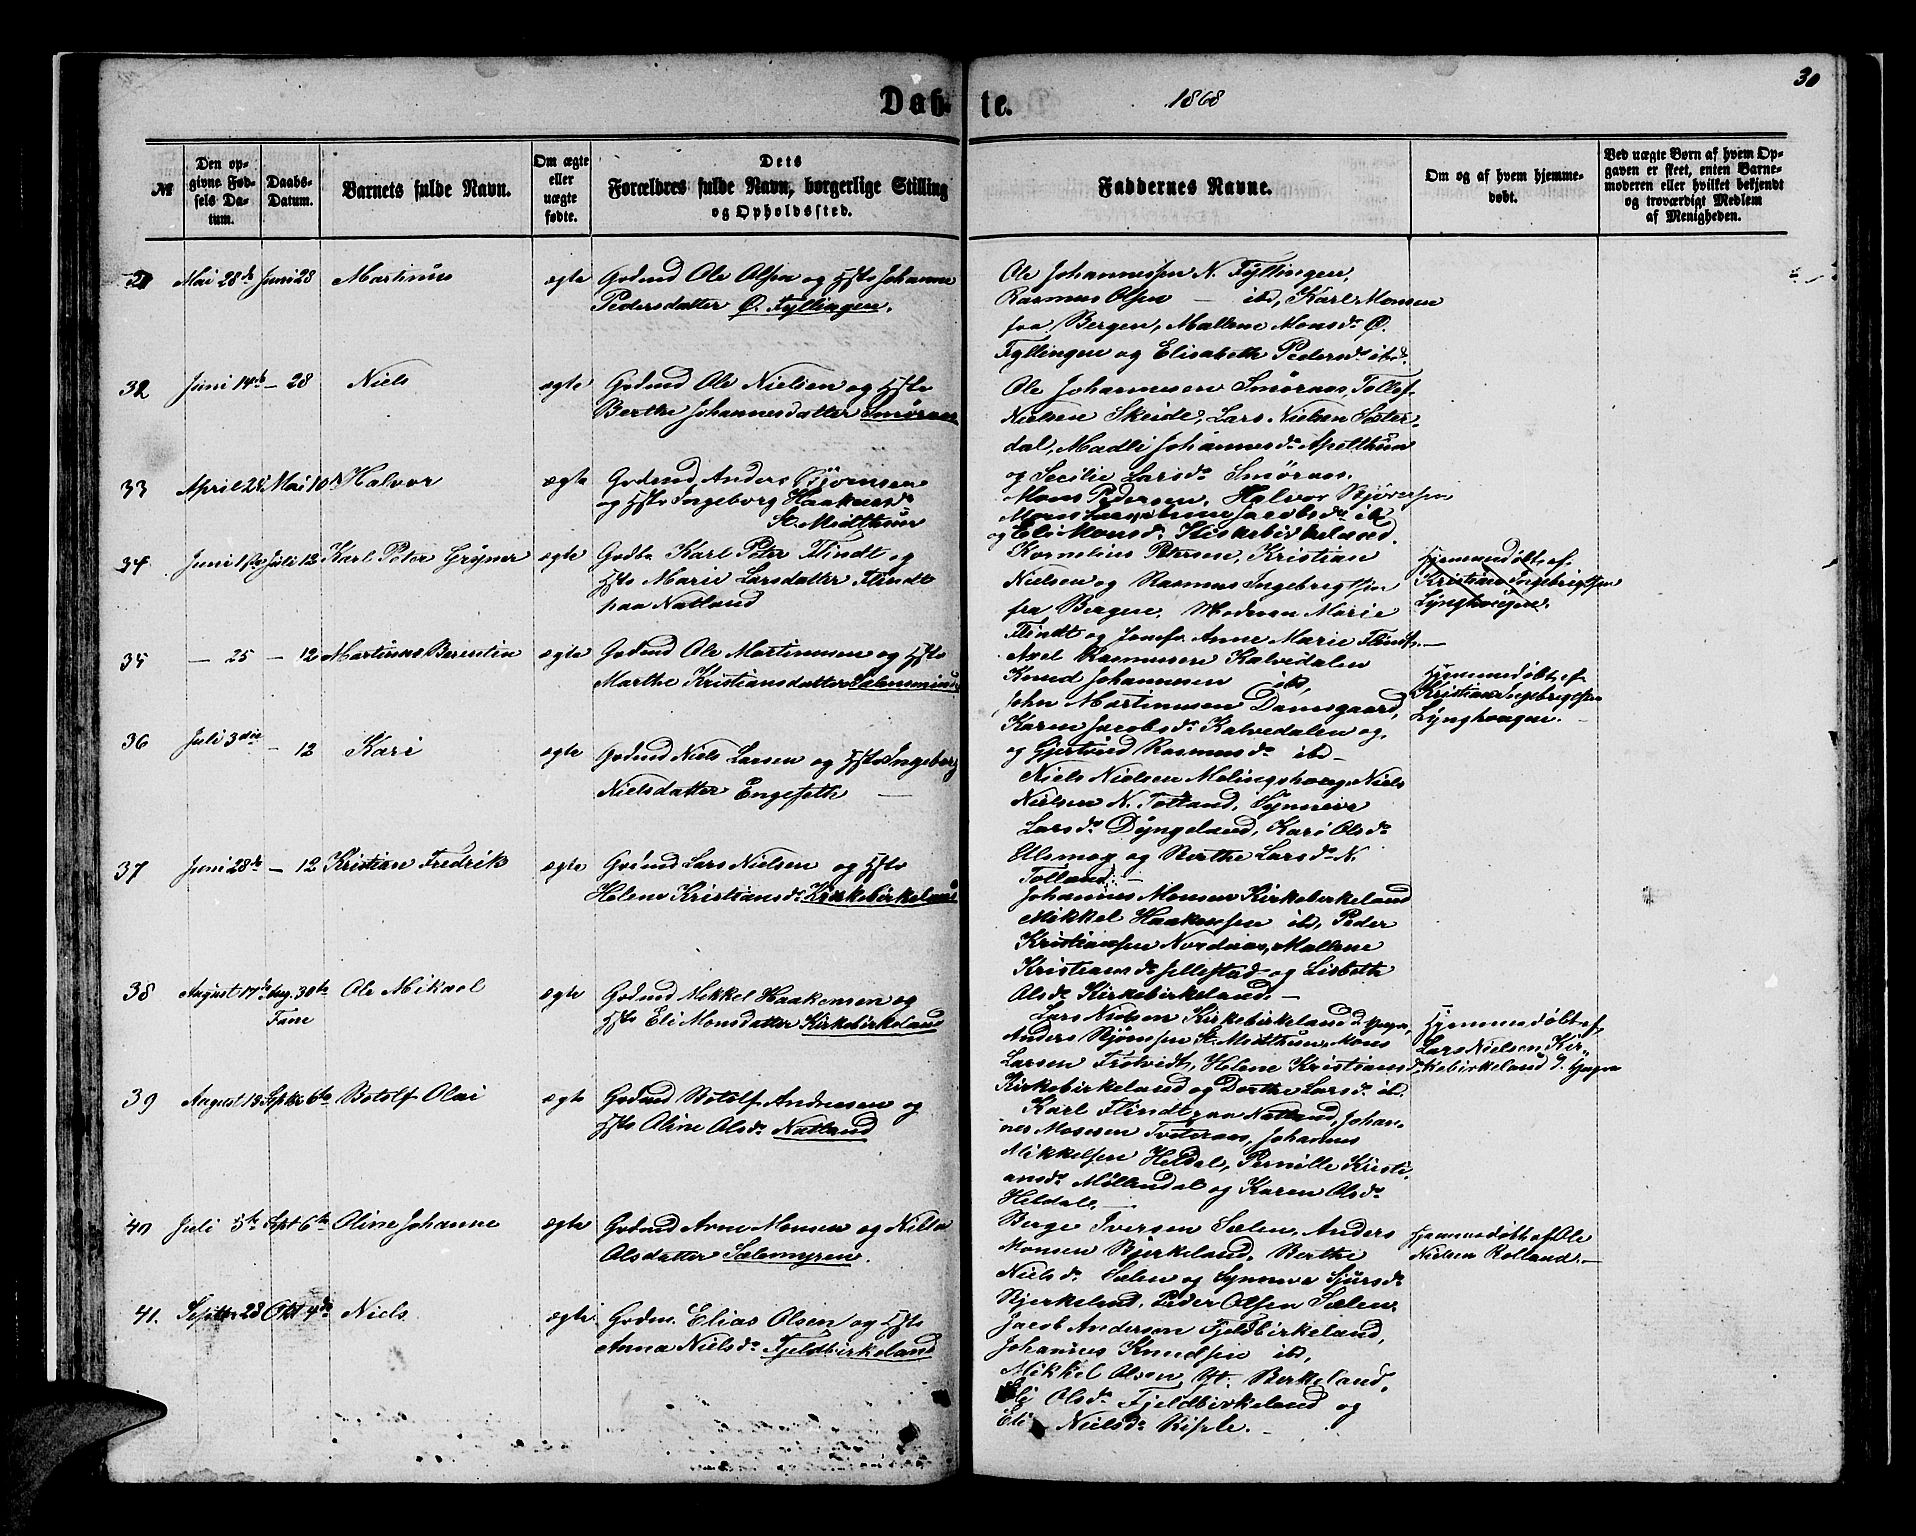 30
Døb- te. 1868
№
Den op-
givne Fød-
sels Da-
tum.
Daabs-
Datum.
Barnets fulde Navn.
Om ægte
eller
uægte
fødte.
Dets
Forældres fulde Navn, borgerlige Stilling
og Opholdssted.
Faddernes Navne.
Om og af hvem hjemme-
døbt.
Ved uægte Børn af hvem Op-
gaven er skeet, enten Barne-
moderen eller hvilket bekjendt
og troværdigt Medlem
af Menigheden.
Mai 28de Juni 28 Martinus ægte Grdmd Ole Olsen og Hsto Johanne
Pedersdatter Ø. Fyllingen.
Ole Johannessen N. Fyllingen,
Rasmus Olsen — ibd, Karl Monsen
fra Bergen, Mallene Monsdr Ø.
Fyllingen og Elisabeth Pedersdr ibd.
32 Juni 14de — 28 Niels ægte Grdmd Ole Nielsen og Hsto
Berthe Johannesdatter Smøraas
Ole Johannesen Smøraas, Tollef
Nielsen Skeide, Lars Nielsen Sæter-
dal, Madli Johannesdr Apelthun
og Secilie Larsdr Smøraas.
33 April 28 Mai 10 Halvor ægte Grdmd Anders Bjørnsen
og Hsto Ingeborg Haakensdr
St. Midthun
Mons Pedersen, Halvor Bjørnsen
Mons Larsen, Anne Jacobsdr ibd
og Eli Monsdr Kirkebirkeland.
34. Juni 1ste Juli 12 Karl Peter Gryner ægte Grdbr Karl Peter Flindt og
Hsto Marie Larsdatter Flindt
paa Natland
Kornelius Petersen, Kristian
Nielsen og Rasmus Ingebrigtsen
fra Bergen. Madmen Marie
Flindt og Jomfr. Anne Marie Flindt. —
Hjemmedøbt af
Kristian Ingebrigtsen
Lynghougen.
35 — 25 — 12 Martinus Berentin ægte Grdmd Ole Martinussen og Hsto
Marthe Kristiansdatter Sælensminde
Axel Rasmussen Kalvedalen
Knud Johannesen ibd,
John Martinussen Damsgaard,
Karen Jacobsdr Kalvedalen og,
og Gjertrud Rasmusdr ibd —
Hjemmedøbt af
Kristian Ingebrigtsen
Lynghougen. —
36 Juli 3die — 12 Kari ægte Grdmd Niels Larsen og Hsto Ingeborg
Nielsdatter Engeseth —
Niels Nielsen Melingshoug, Niels
Nielsen N. Totland, Synneve
Larsdr Dyngeland, Kari Olsdr
Ulsmog og Berthe Larsdr N.
Totland. —
37 Juni 28de — 12 Kristian Fredrik ægte Grdmd Lars Nielsen og Hsto
Helene Kristiansdr Kirkebirkeland
Johannes Monsen Kirkebirkeland
Mikkel Haakensen ibd, Peder
Kristiansen Nordnæs, Mallene
Kristiansdr Hellestad og Lisbeth
Olsdr Kirkebirkeland. —
38 August 17de Aug. 30te Ole Mikael ægte Grdmd Mikkel Haakensen og
Fane Hsto Eli Monsdatter Kirkebirkeland
Lars Nielsen Kirkebirkeland d. Yngre,
Anders Bjørnsen St. Midthun, Mons
Larsen Frotvedt, Helene Kristiansdr
Kirkebirkeland og Dorthe Larsdr ibd.
Hjemmedøbt af
Lars Nielsen Kir-
kebirkeland d. Yngre
39 August 18 Septbr 6te Botolf Olai ægte Grdmd Botolf Andersen og
Hsto Oline Olsdr Natland
Karl Flindt paa Natland, Johan-
nes Mosesen Tveteraas, Johannes
Mikkelsen Heldal, Pernille Kristi-
ansdr Møllendal og Karen Olsdr
Heldale. —
40 Juli 5te Sept 6te Oline Johanne ægte Grdmd Arne Monsen og Nilla
Olsdatter Sælemyren.
Berge Iversen Sælen, Anders
Monsen Bjerkeland, Berthe
Nielsdr Sælen og Synneve Sjursdr
Bjerkeland, Peder Olsen Sælen.
Hjemmedøbt af Ole
Nielsen Rolland. —
41. Septbr 28 Okt 4de Niels ægte Grdm. Elias Olsen og Hsto
Anna Nielsdr Fjeldbirkeland
Jacob Andersen Fjeldbirkeland,
Johannes Knudsen ibd,
Mikkel Olsen Yt. Berkeland,
Olsdr Fjeldbirkeland og
Eli Nielsdr Riple. —